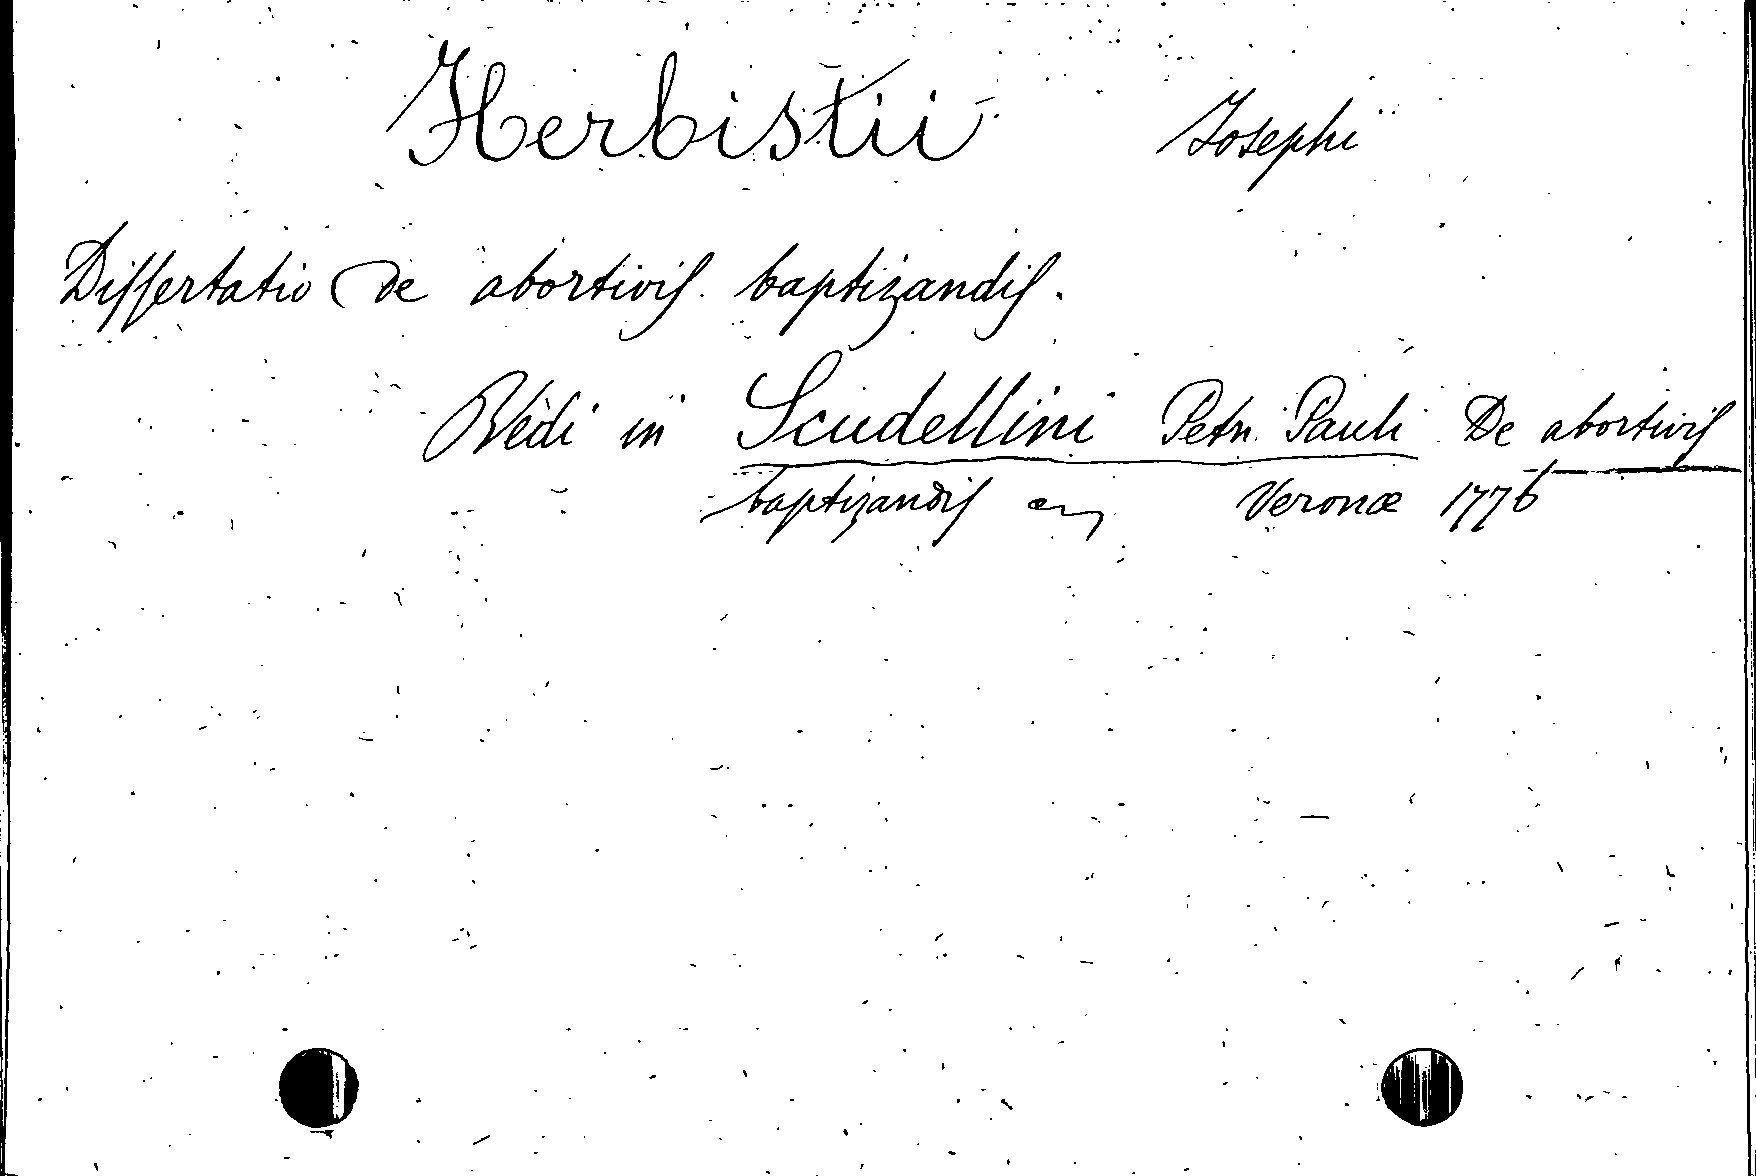 Herbistii Josephi
Dissertatio de abortivis baptizandis.
Vedi in Scudellini Petri Pauli De abortivis
baptizandis Veronæ 1776